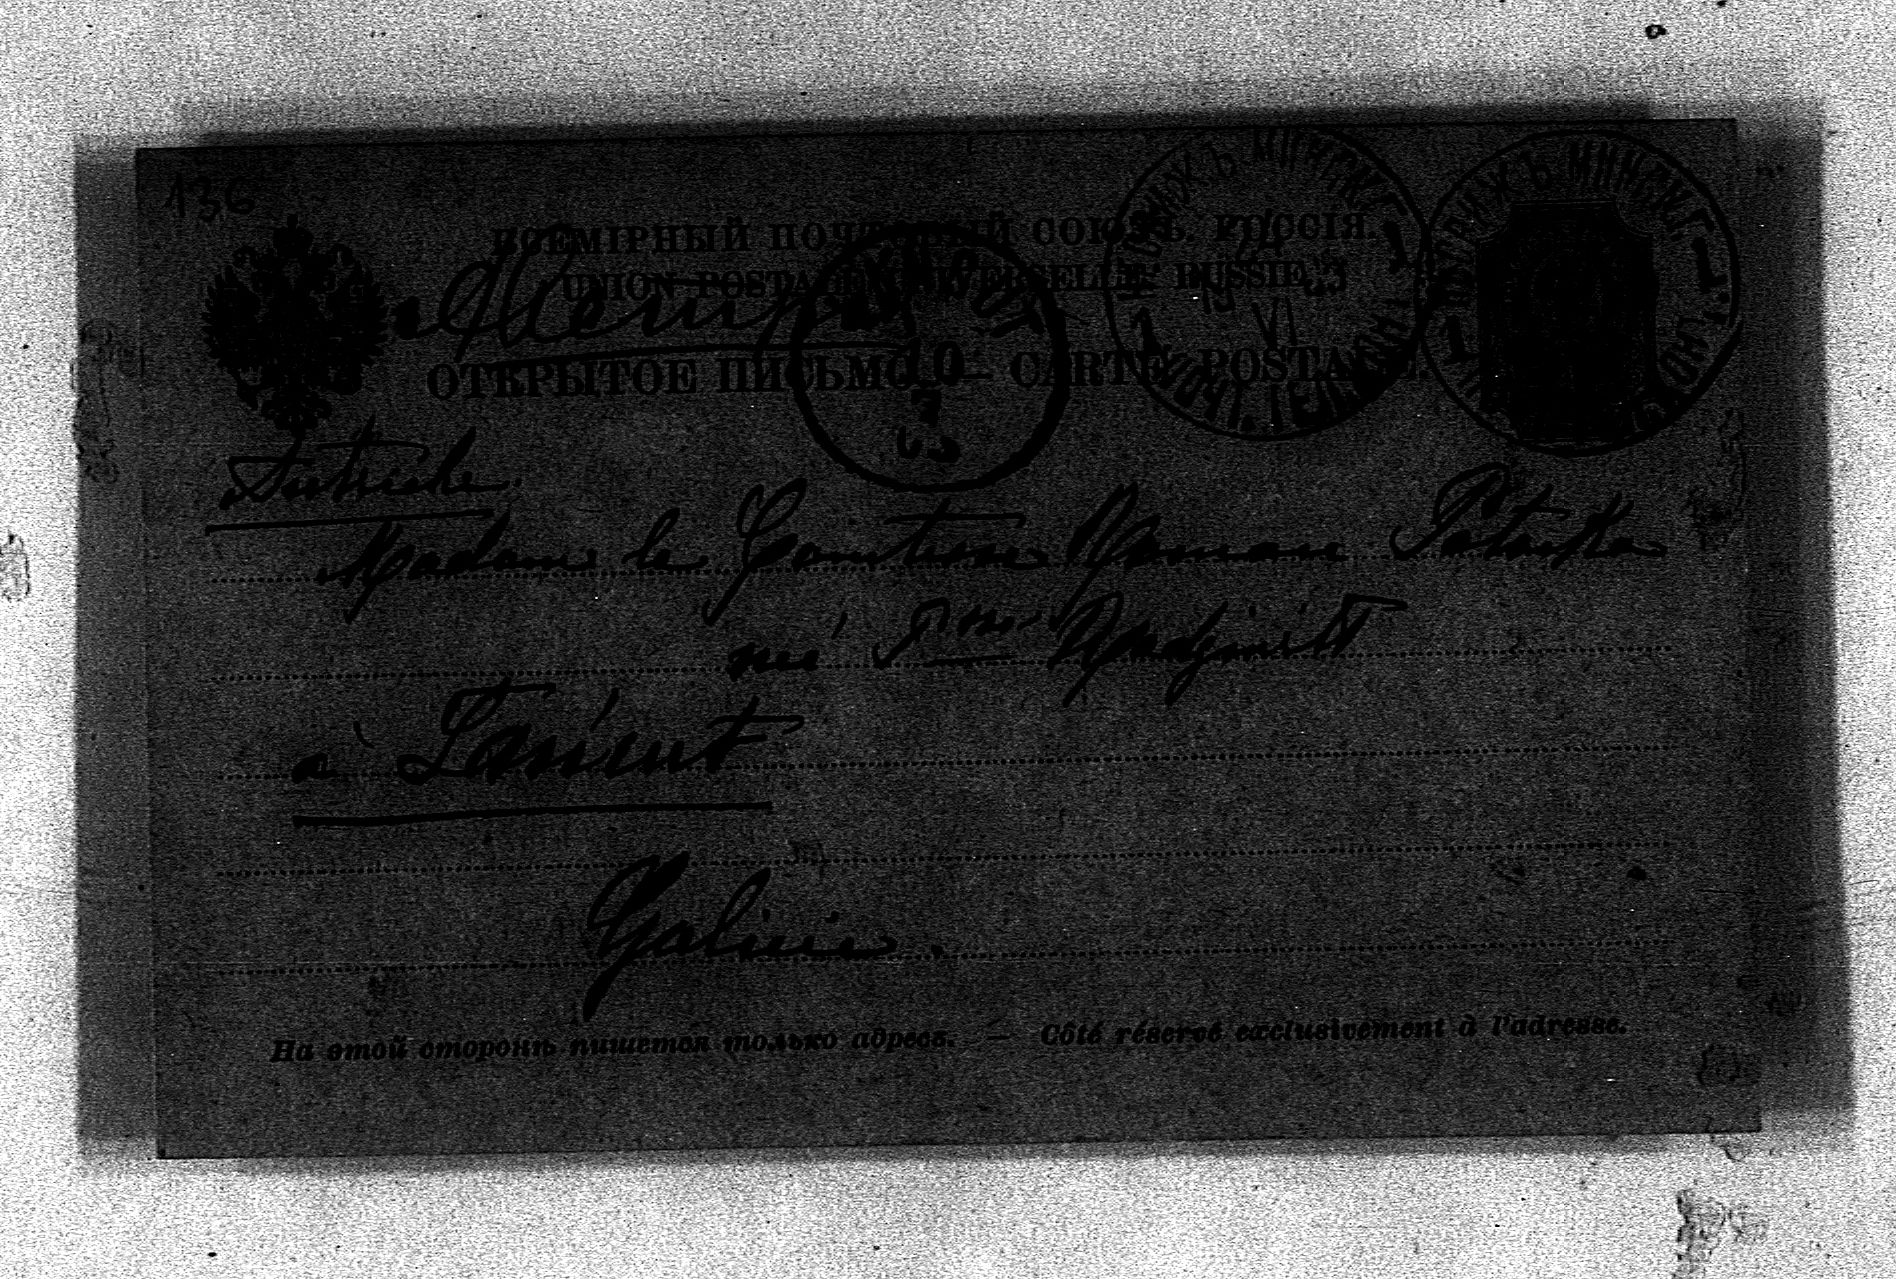 136
ВСЕМІРНЫЙ ПОЧТОВЫЙ СОЮЗЪ. РОССІЯ.
UNION POSTALE UNIVERSELLE. RUSSIE.
ОТКРЫТОЕ ПИСЬМО — CARTE POSTALE.
МИНСК. Г.
МИНСК. Г.
10
7
Autriche.
Madame la Comtesse Roman Potocka
née Psse Radziwill
à Łańcut
Galicie.
На этой сторонѣ пишется только адресъ. — Côté réservé exclusivement à l'adresse.